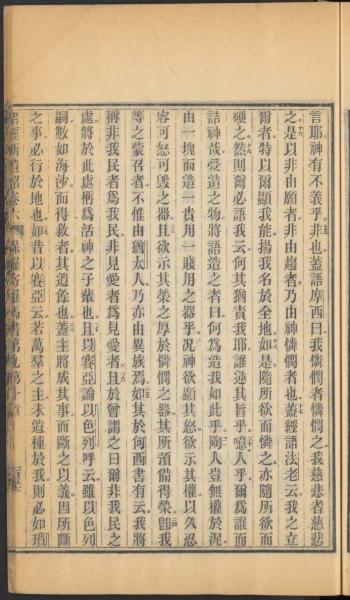 言耶神有不義乎非也蓋語摩西曰我憐憫者憐憫之我慈悲者慈悲
之是以非由願者非由趨者乃由神憐憫者也蓋經語法老云我之立
爾者特以爾顯我能揚我名於全地如是隨所欲而憐之亦隨所欲而
硬之然則爾必語我云何其猶責我耶誰逆其旨乎噫人乎爾為誰而
詰神哉受造之物將語造之者曰何為造我如此乎陶人豈無權於泥
由一塊而造一貴用一賤用之器乎況神欲顯其怒欲示其權以久忍
容可怒可毀之器且欲示其榮之厚於憐憫之器其所預備得榮卽我
等之蒙召者不惟由猶太人乃亦由異族焉如其於何西書有云我將
稱非我民者為我民非見愛者為見愛者且於曾謂之曰爾非我民之
處將於此處稱為活神之子輩也且以賽亞論以色列呼云雖以色列
嗣數如海沙而得救者其遺餘也蓋主將成其事而斷之以義因所斷
之事必行於地也如昔以賽亞云若萬羣之主未遺種於我則必如瑣
聖經新遺詔卷六 與羅馬輩書第九第十章